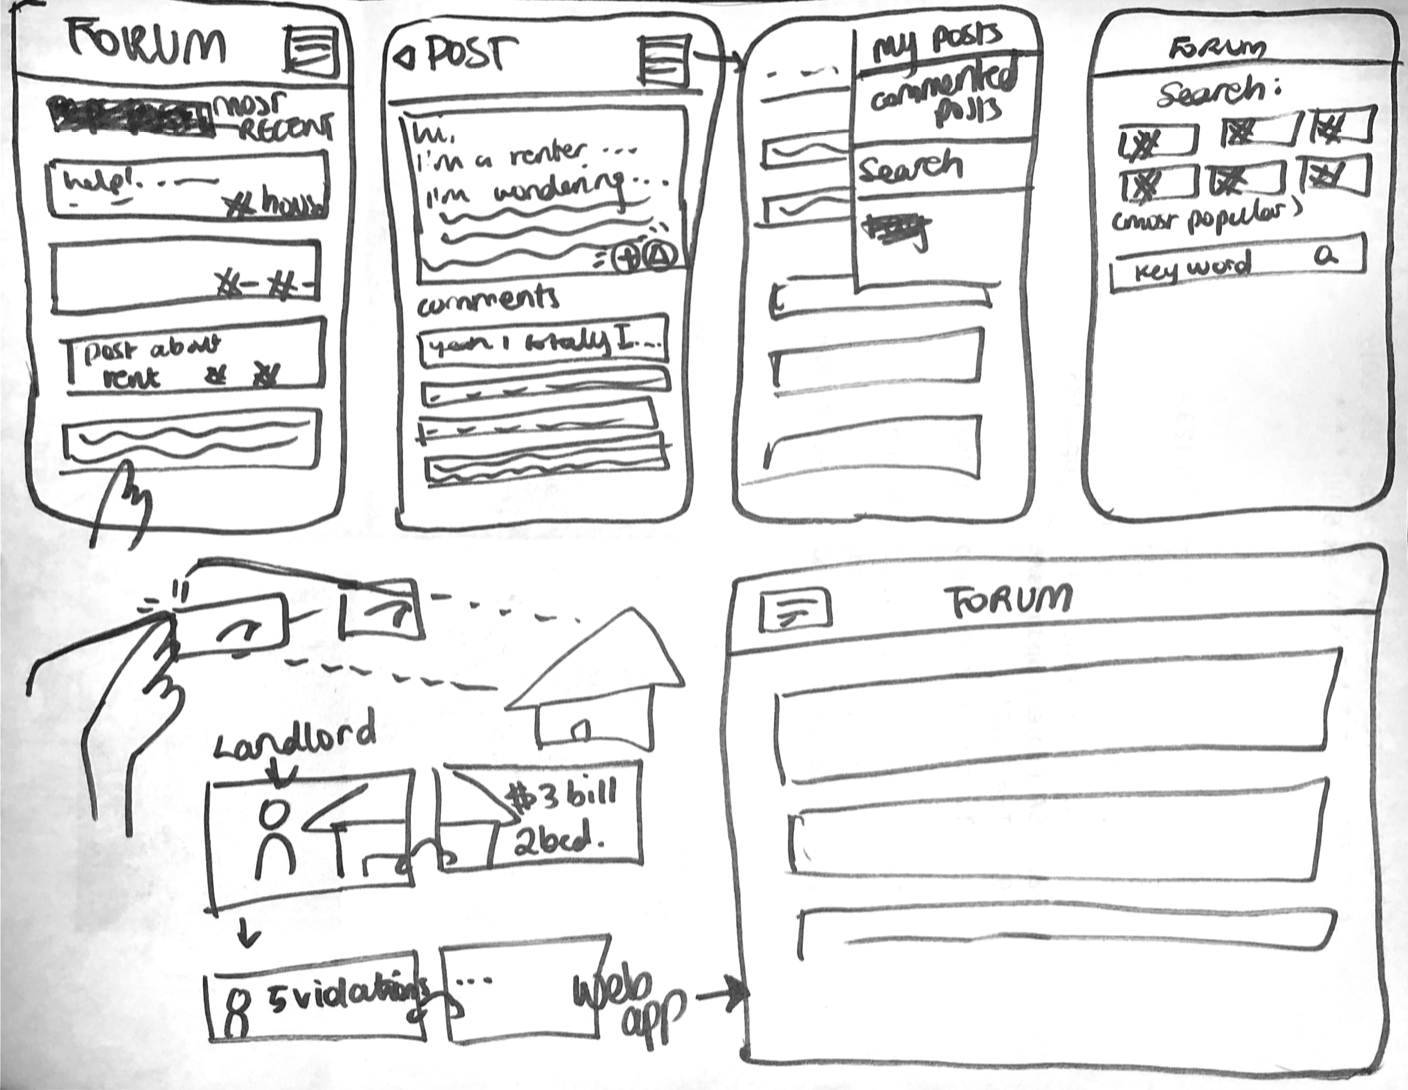 FORUM
MOST
RECENT
help!
# house
#- #-
post about
rent # #
POST
hi,
I'm a renter ...
I'm wondering...
comments
yeah I totally I...
My posts
commented
posts
Search
FORUM
Search:
# # #
# # #
(most popular)
key word
Landlord
$3 bill
2bed.
5 violations
...
Web
app
FORUM